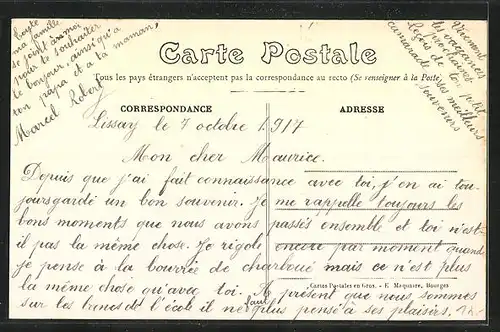 Toute
ma famille
se joint à moi
pour te souhaiter
le bonjour ainsi qu'a
ton papa et a ta maman,
Marcel Robert
Vivement
les vacances
pour
ton petit
camarade
ses meilleurs
souvenirs
Carte Postale
Tous les pays étrangers n'acceptent pas la correspondance au recto (Se renseigner à la Poste)
CORRESPONDANCE
ADRESSE
Lissay le 7 octobre 1917
Mon cher Maurice.
Depuis que j'ai fait connaissance avec toi, j'en ai tou-
joursgardé un bon souvenir. Je me rappelle toujours les
bons moments que nous avons passés ensemble et toi n'est-
il pas la même chose. Je rigole encore par moment quand
je pense à la bourrée de charboué mais ce n'est plus
la même chose qu'avec toi. A présent que nous sommes
sur les bancs de l'école il ne faut plus pense à ses plaisirs.
Cartes Postales en Gros. - E. Maquaire, Bourges